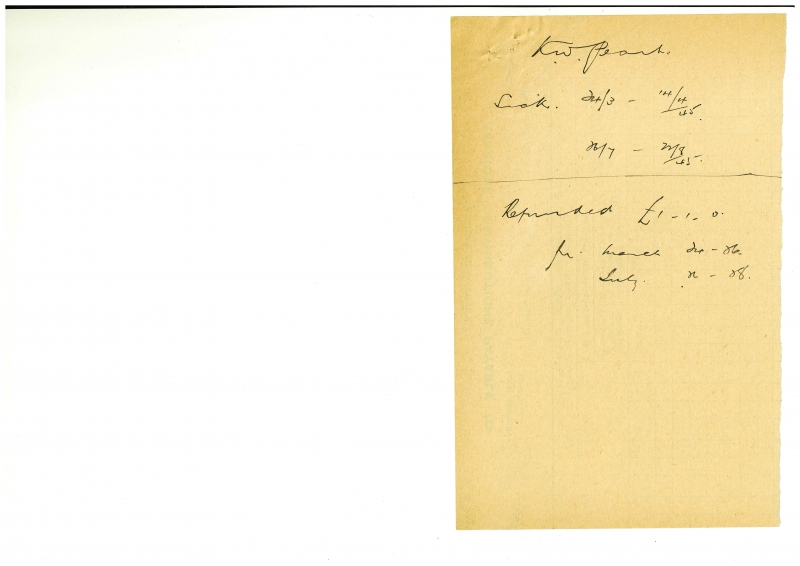 K.W. Peart.
Sick. 24/3 - 14/4/45.
26/7 - /45.
Refunded £1-1-0.
for March 24-26.
July. - 28.